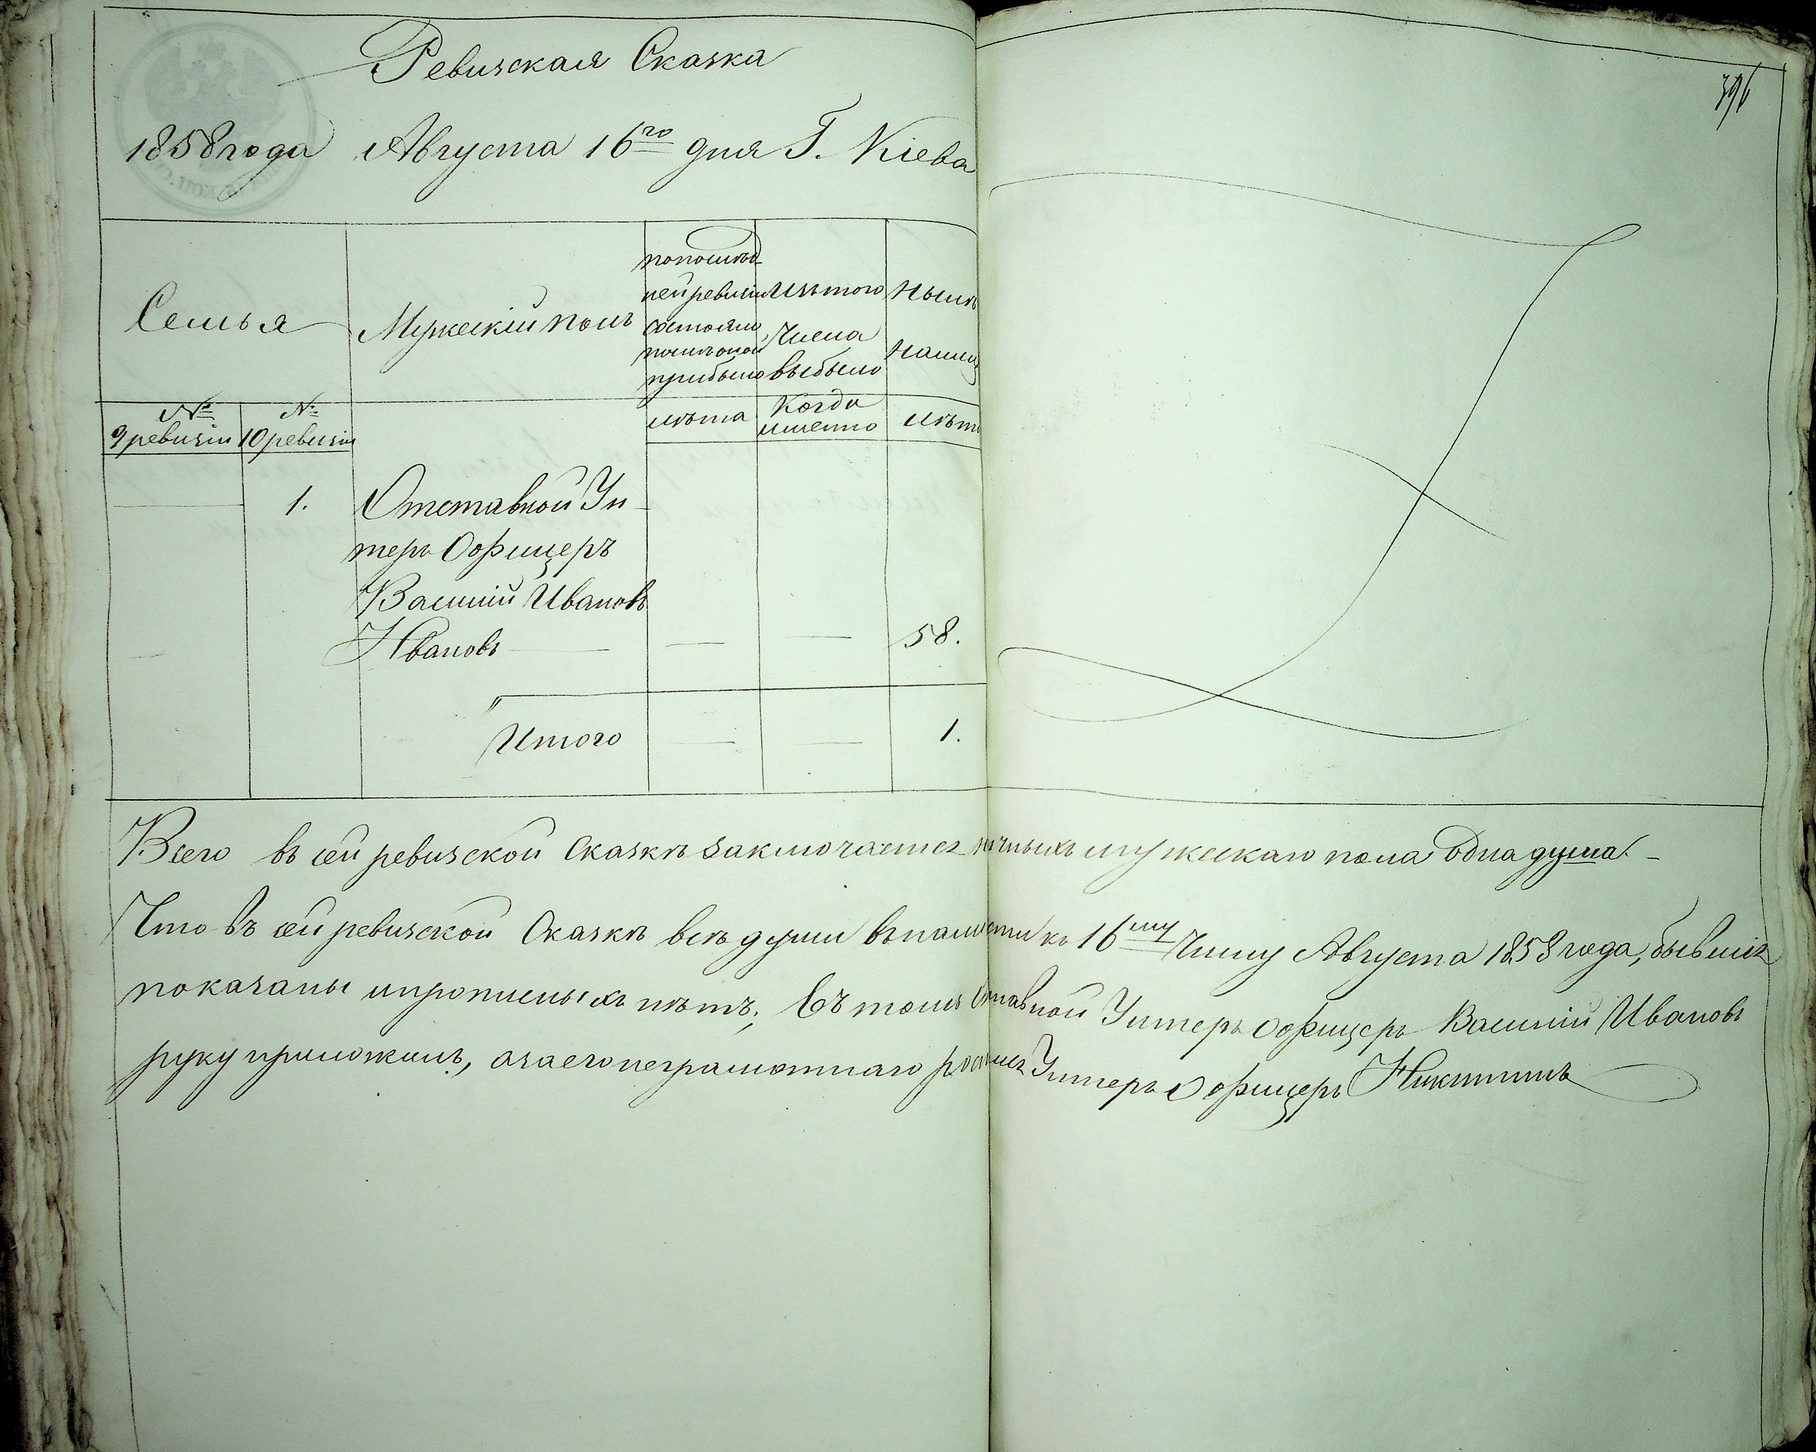 Ревизская Сказка
396
1858 года Августа 16го дня Г. Кіева
Семья
Мужескій полъ
по послѣд-
ней ревизіи
состояло
и послѣ оной
прибыло
Изъ того
числа
выбыло
Нынѣ
на лицо
№ 9 ревизіи
№ 10 ревизіи
лѣта
Когда
именно
лѣта
1. Отставной Ун-
теръ Офицеръ
Василій Ивановъ
Ивановъ — — 58.
Итого — — 1.
Всего въ сей ревизской сказкѣ заключается наличныхъ мужескаго пола одна душа. —
Что въ сей ревизской Сказкѣ всѣ души въ наличности къ 16му числу Августа 1858 года, бывшіе
показаны и прописныхъ нѣтъ; Въ томъ отставной Унтеръ Офицеръ Василій Ивановъ
руку приложилъ, а за его неграмотнаго росписался Унтеръ Офицеръ Никитинъ